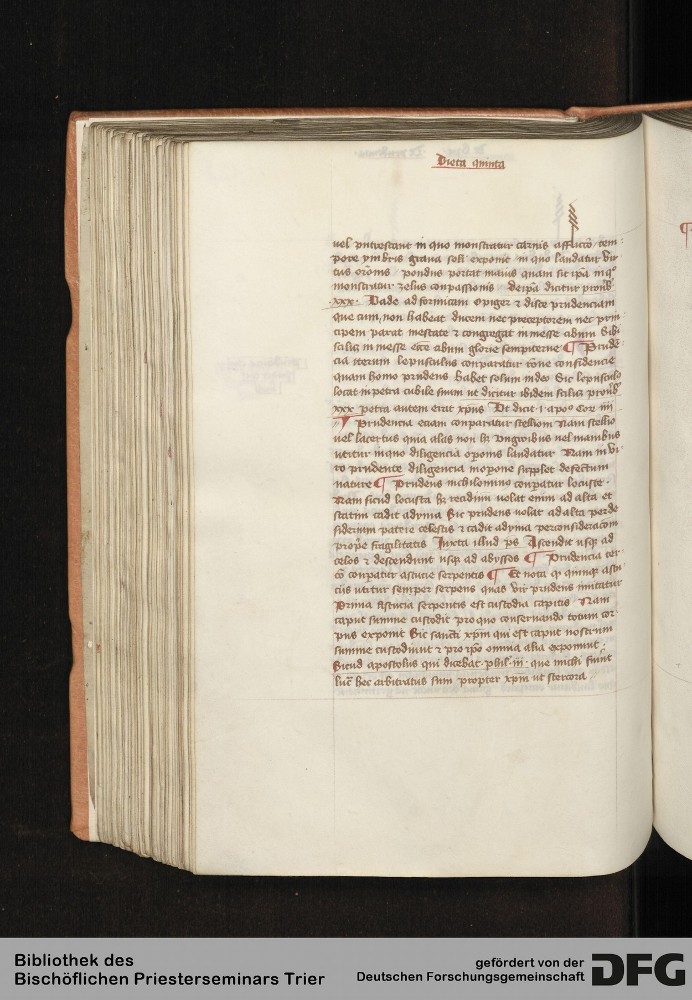 Dieta quinta
vel putrescant in quo monstratur carnis afflictio tem
pore ymbris grana soli exponit in quo laudatur vir
tus orōnis pondus portat maius quam sit ip̄a in q°
monstratur zelus conpassionis de ip̄a dicitur prou͛b
xxx. Vade ad formicam o piger et disce prudenciam
que cum non habeat ducem nec preceptorem nec prin
cipem parat in estate et congregat in messe cibum sibi
scilicet in messe cibum glorie sempiterne ¶ Pruden
cia iterum lepusculus conparatur rōne confidencie
quam homo prudens habet solum in deo Sic lepusculus
locat in petra cubile suum ut dicitur ibidem scilicet prou͛b
xxx petra autem erat xp̄us Ut dicit apo⁹ Cor
¶ Prudencia eciam conparatur stellioni Nam stellio
vel lacertus quia alas non hꝫ ungwibus vel manibus
utitur in quo diligencia op̄onis laudatur Nam in vi
ro prudente diligencia in op̄one supplet defectum
nature ¶ Prudens nichilomino conp̄atur locuste
Nam sicud locusta volat enim ad alta et
statim cadit ad yma Sic prudens volat ad alta per de
siderium patrie celestis et cadit ad yma per consideracōem
prop̄e fragilitatis Iuxta illud ps Ascendit usqꝫ ad
celos et descendunt usqꝫ ad abyssos ¶ Prudencia ter
cō conp̄atur astucie serpentis ¶ Et nota qꝫ quinqꝫ astu
ciis utitur semper serpens quas vir prudens imitatur
Prima astucia serpentis est custodia capitis Nam
caput summe custodit pro quo conservando totum cor
pus exponit Sic sancti xp̄m qui est caput nostrum
summe custodiunt et pro ip̄o omnia alia exponunt
Sicud apostolus qui dicebat phil iii que michi fuerunt
lucra hec arbitratus sum propter xp̄m ut stercora
Bibliothek des
Bischöflichen Priesterseminars Trier
gefördert von der
Deutschen Forschungsgemeinschaft
DFG